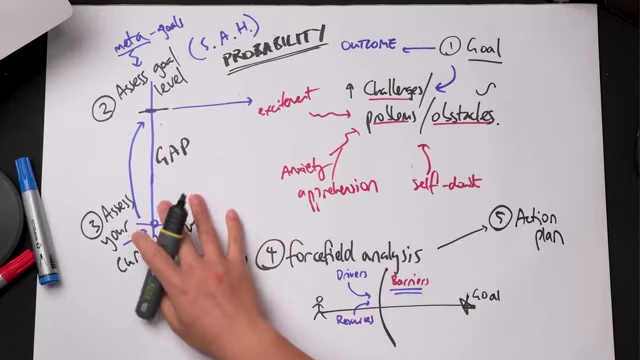 meta-goals
(S.A.H.)
PROBABILITY
OUTCOME
① Goal
② Assess goal
level
excitement
↑ Challenges/
problems/obstacles.
GAP
Anxiety
apprehension
self-doubt
③ Assess
your
④ forcefield analysis
⑤ Action
plan
Drivers
Barriers
Resources
Goal